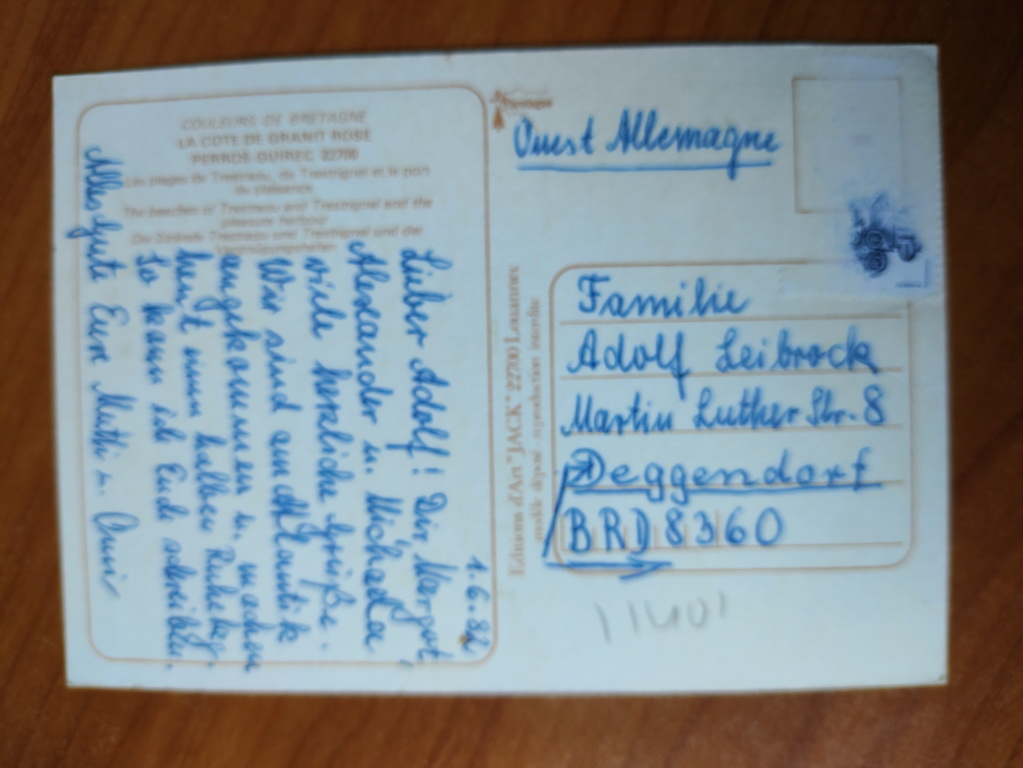 COULEURS DE BRETAGNE
LA COTE DE GRANIT ROSE
PERROS-GUIREC 22700
Les plages de Trestraou, de Trestrignel et le port
de plaisance
The beaches of Trestraou and Trestrignel and the
pleasure harbour
Die Strände Trestraou und Trestrignel und der
1.6.82
Lieber Adolf! Dir Margot,
Alexander u. Michaela
viele herzliche Grüße.
Wir sind am Atlantik
angekommen u. machen
heut nun halben Ruhetag.
So kann ich Euch schreiben.
Alles Gute Eure Mutti u.
Editions d'Art "JACK" 22700 Louannec
modèle déposé - reproduction interdite
Ouest Allemagne
Familie
Adolf Leibrock
Martin Luther Str. 8
Deggendorf
BRD 8360